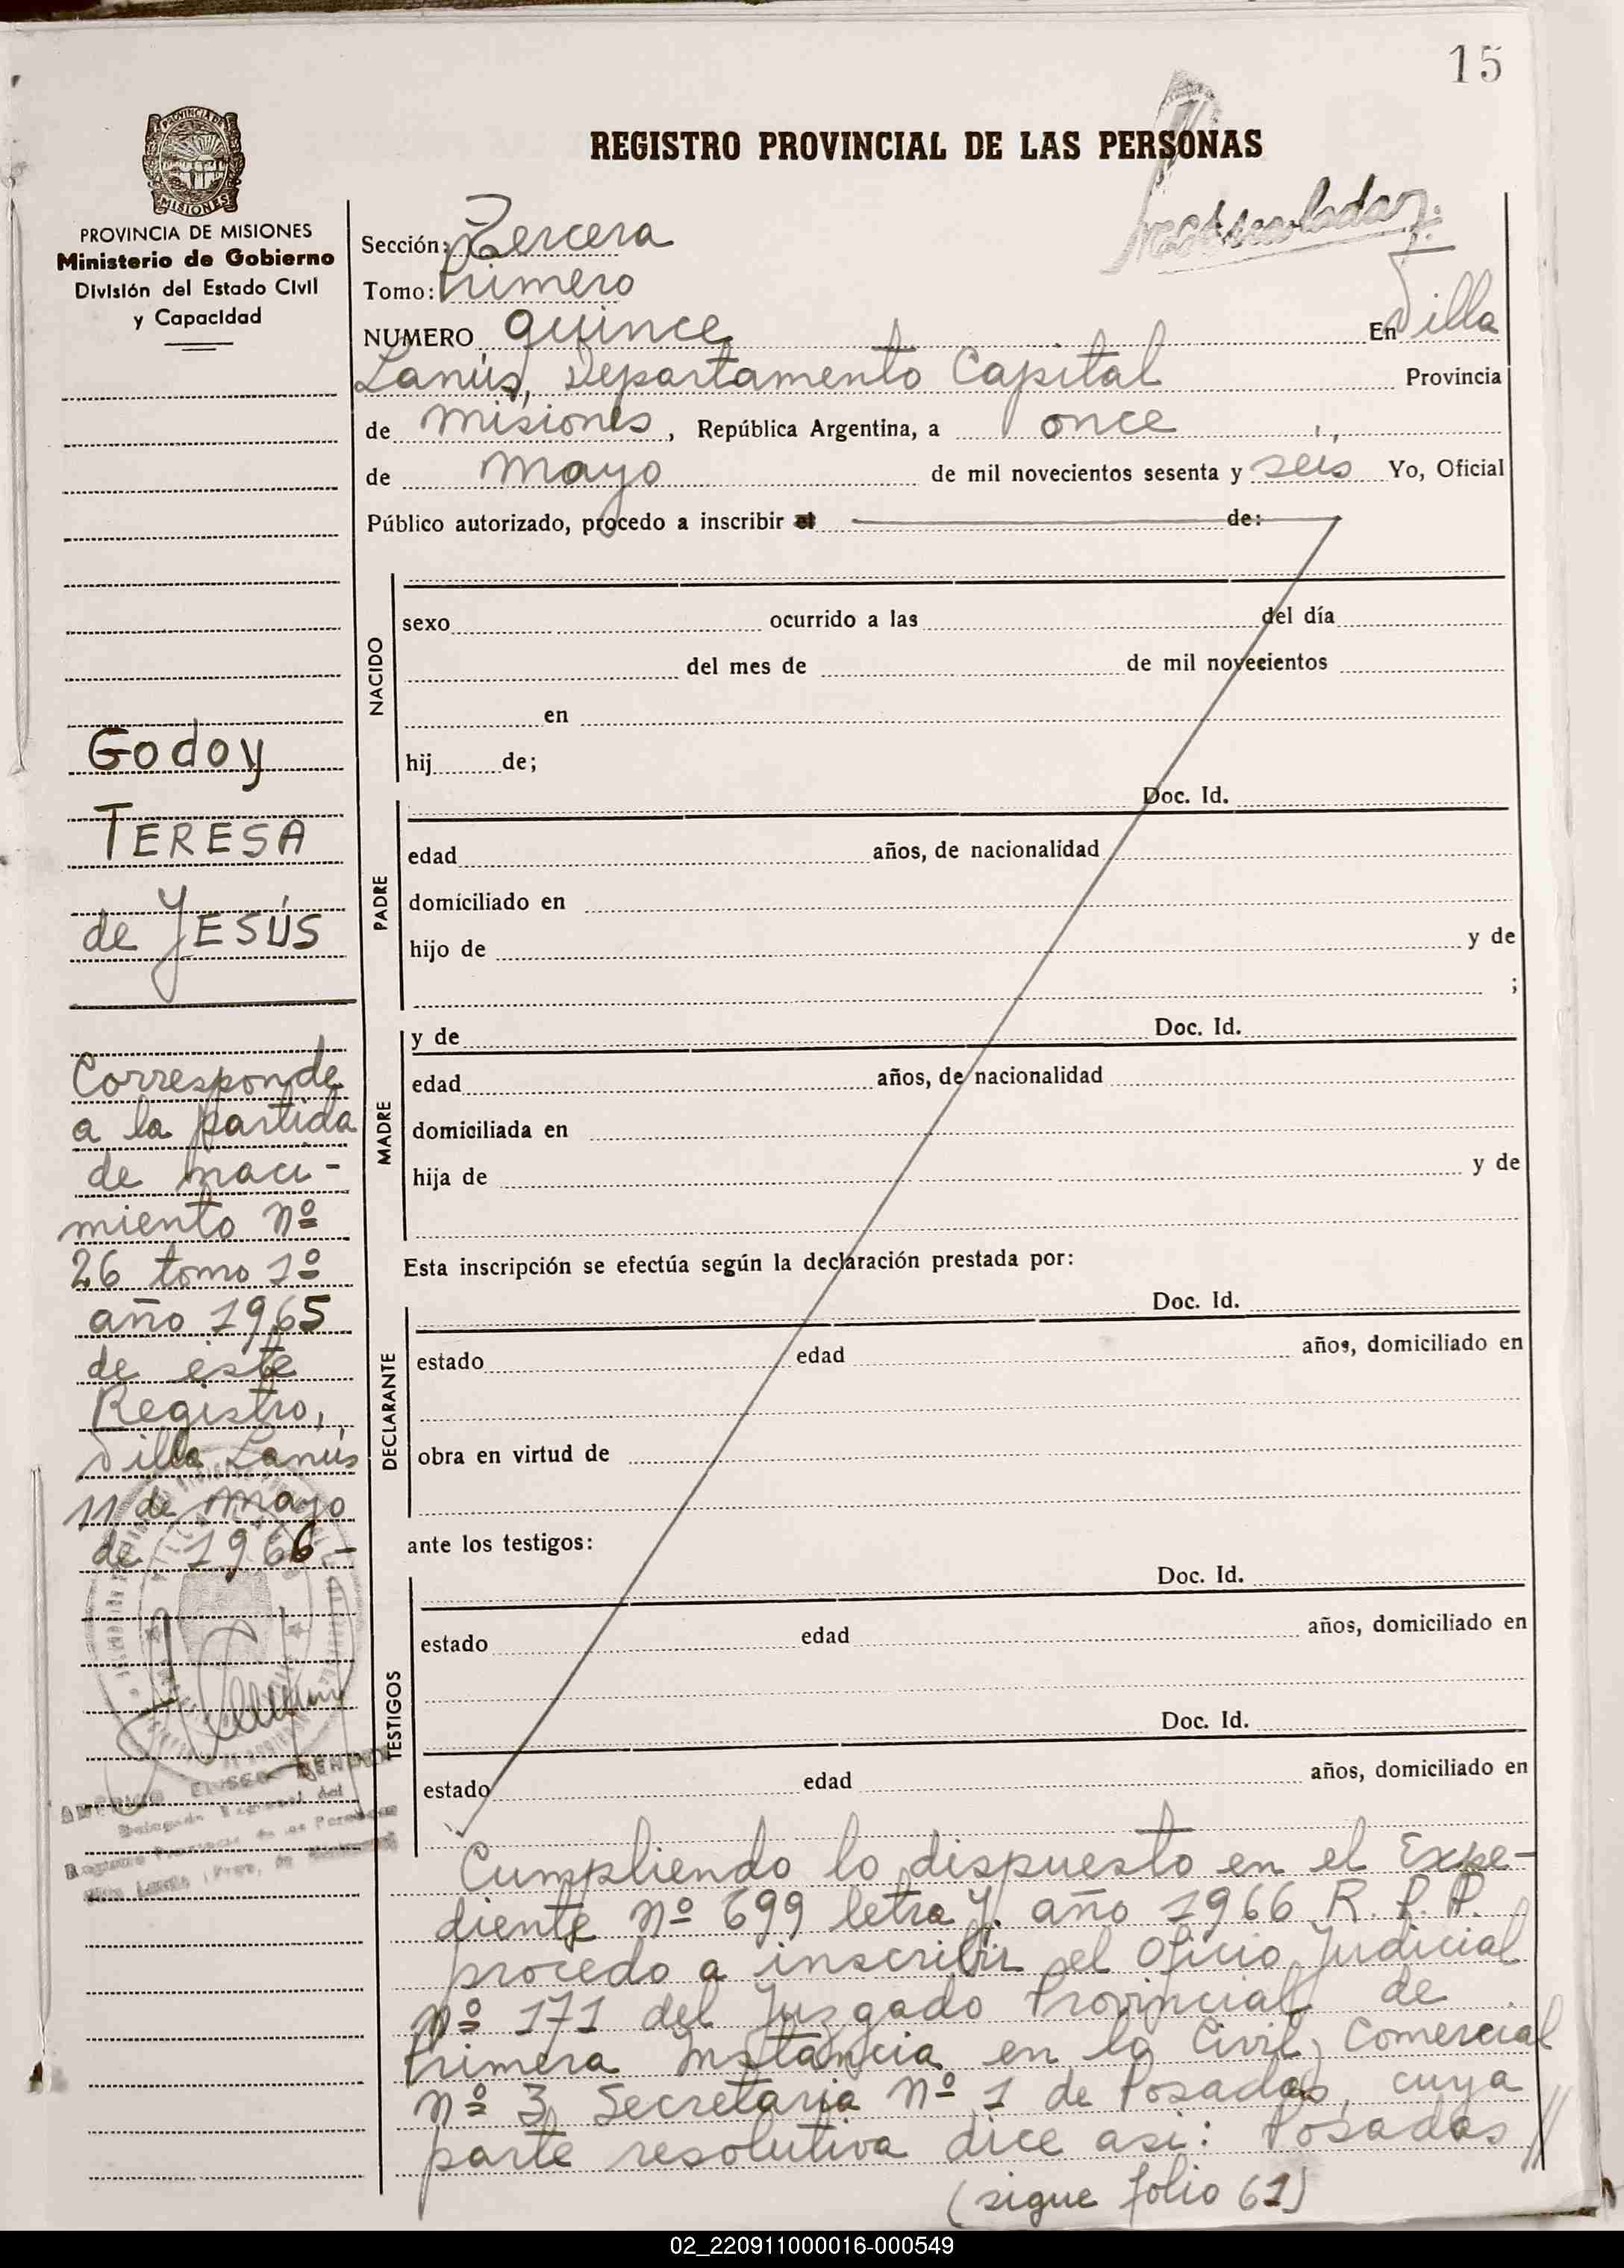 15
REGISTRO PROVINCIAL DE LAS PERSONAS
PROVINCIA DE
MISIONES
PROVINCIA DE MISIONES
Ministerio de Gobierno
División del Estado Civil
y Capacidad
Sección: Tercera
Tomo: Primero
NUMERO quince En Villa
Lanús, Departamento Capital Provincia
de Misiones, República Argentina, a once
de Mayo de mil novecientos sesenta y seis Yo, Oficial
Público autorizado, procedo a inscribir el de:
NACIDO
sexo ocurrido a las del día
del mes de de mil novecientos
en
hij de;
PADRE
Doc. Id.
edad años, de nacionalidad
domiciliado en
hijo de y de
;
MADRE
y de Doc. Id.
edad años, de nacionalidad
domiciliada en
hija de y de
Esta inscripción se efectúa según la declaración prestada por:
DECLARANTE
Doc. Id.
estado edad años, domiciliado en
obra en virtud de
ante los testigos:
TESTIGOS
Doc. Id.
estado edad años, domiciliado en
Doc. Id.
estado edad años, domiciliado en
Cumpliendo lo dispuesto en el Expe-
diente nº 699 letra J. año 1966 R. P. P.
procedo a inscribir el Oficio Judicial
Nº 171 del Juzgado Provincial de
Primera Instancia en lo Civil, Comercial
Nº 3, Secretaria Nº 1 de Posadas, cuya
parte resolutiva dice asi: Posadas //
(sigue folio 61)
Godoy
TERESA
de JESÚS
Corresponde
a la partida
de naci-
miento Nº
26 tomo 1º
año 1965
de este
Registro,
Villa Lanús
11 de Mayo
de 1966-
Delegado del
02_220911000016-000549